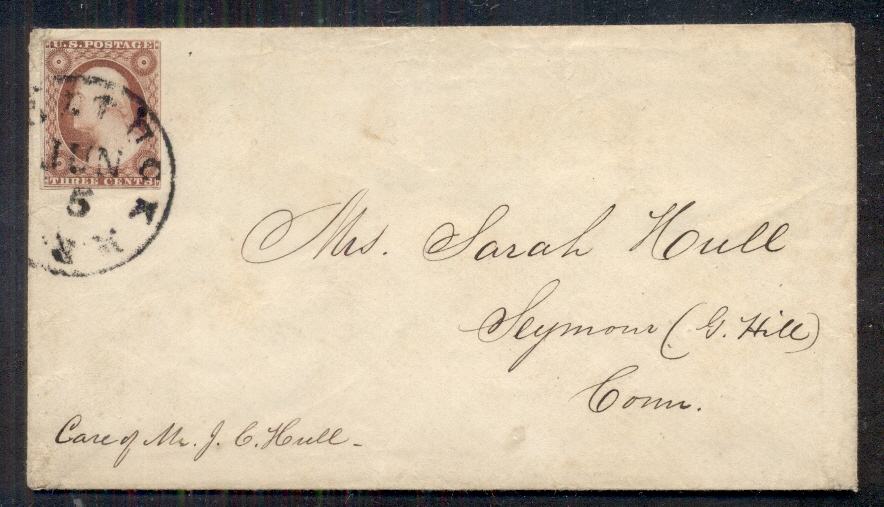 U.S. POSTAGE
JUN
5
THREE CENTS
Mrs. Sarah Hull
Seymour (G. Hill)
Conn.
Care of Mr. J. C. Hull -